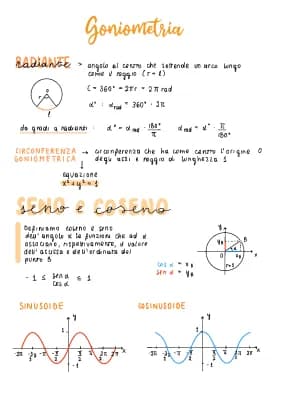 Goniometria
RADIANTE
radiante > angolo al centro che sottende un arco lungo
come il raggio (r = l)
r r
l
l = 360° = 2πr = 2π rad
α° : α rad = 360° : 2π
da gradi a radianti : α° = α rad · 180°/π α rad = α° · π/180°
CIRCONFERENZA GONIOMETRICA → circonferenza che ha come centro l'origine O
degli assi e raggio di lunghezza 1
equazione
x²+y²=1
SENO E COSENO
seno e coseno
Definiamo coseno e seno
dell'angolo α la funzioni che ad α
associano, rispettivamente, il valore
dell'ascissa e dell'ordinata del
punto B
-1 ≤ sen α cos α ≤ 1
cos α = xB
sen α = yB
r=1
SINUSOIDE COSINUSOIDE